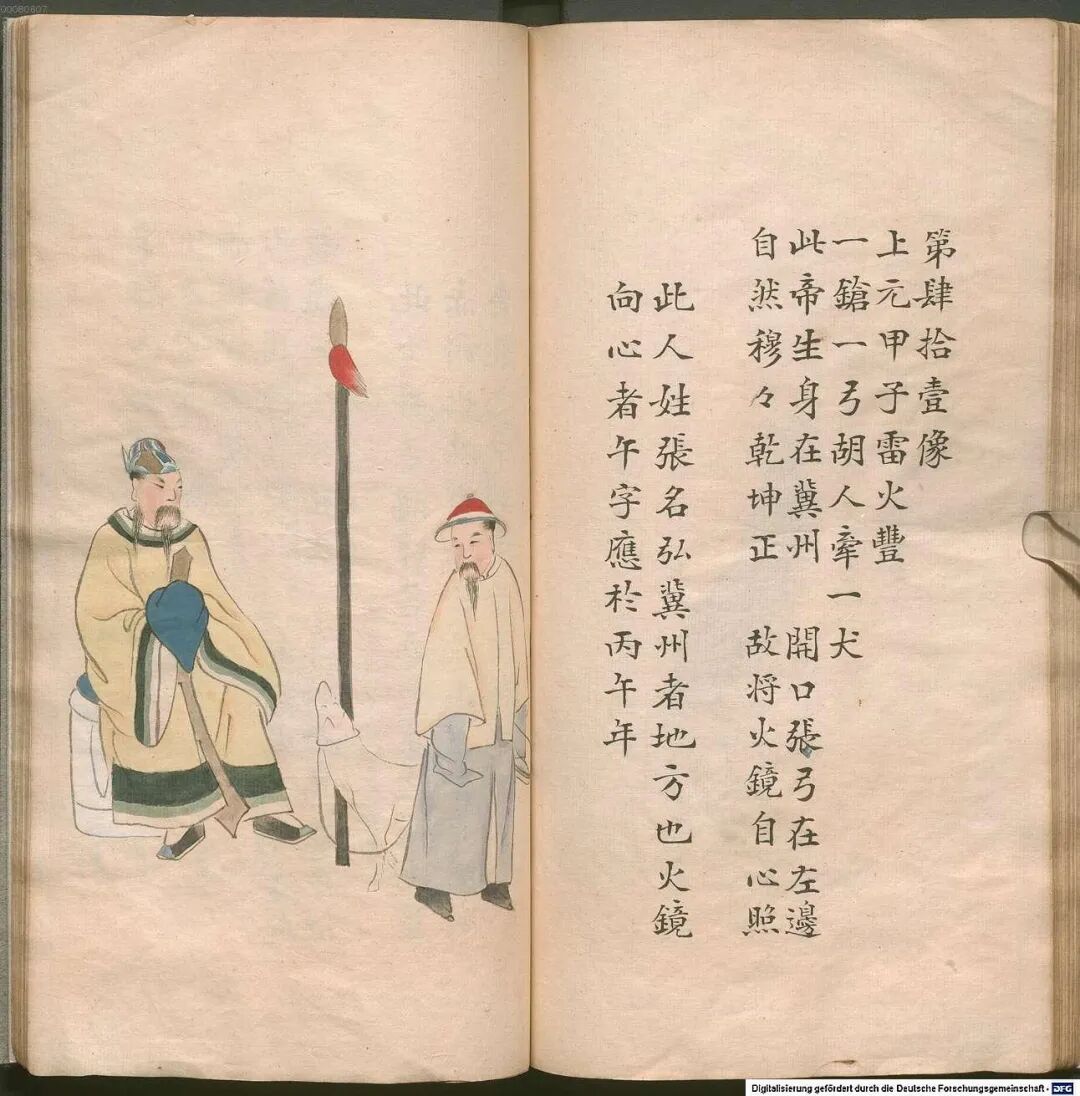 第肆拾壹像
上元甲子雷火豐
一鎗一弓胡人牽一犬
此帝生身在冀州　開口張弓在左邊
自然穆々乾坤正　故將火鏡自心照
此人姓張名弘冀州者地方也火鏡
向心者午字應於丙午年
00080607
Digitalisierung gefördert durch die Deutsche Forschungsgemeinschaft - DFG